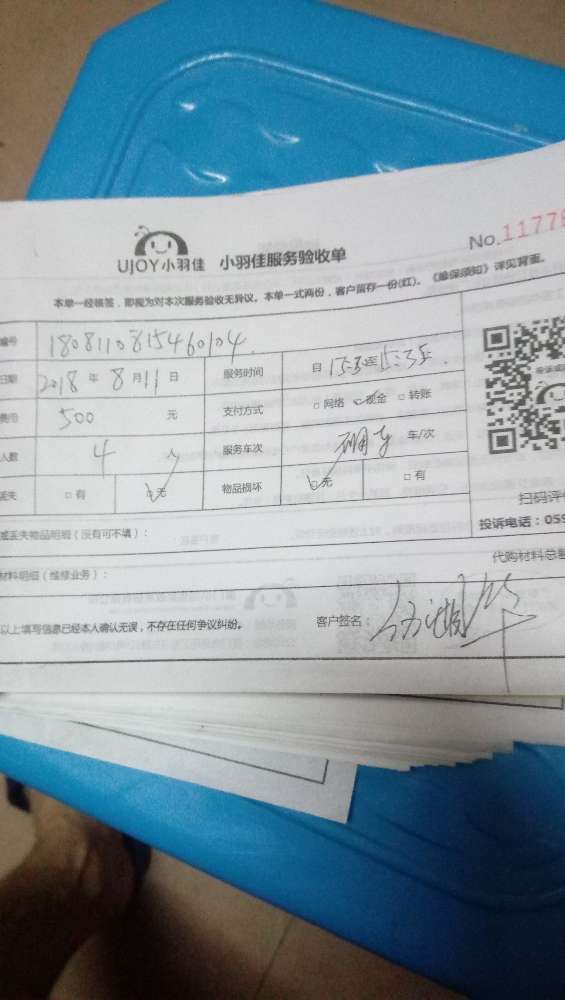 UJOY小羽佳 小羽佳服务验收单
No.11778
本单一经核签，即视为对本次服务验收无异议。本单一式两份，客户留存一份(红)。《维保须知》详见背面。
编号 1808110815460104
日期 2018 年 8 月 11 日 服务时间
费用 500 元 支付方式 □网络 ☑现金 □转账
人数 4 服务车次 车/次
丢失 □有 ☑无 物品损坏 ☑无 □有
扫码评价
减丢失物品明细（没有可不填）：
投诉电话：059
材料明细（维修业务）：
代购材料总额
以上填写信息已经本人确认无误，不存在任何争议纠纷。
客户签名：